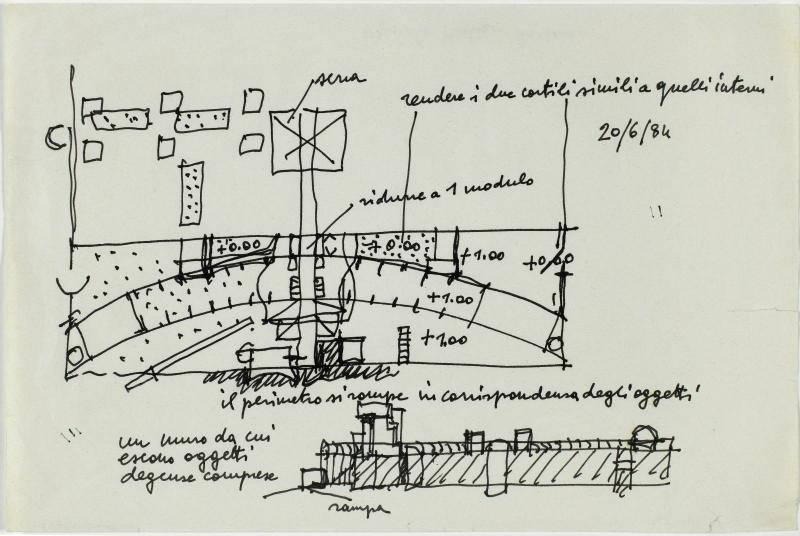 serra
rendere i due cortili simili a quelli interni
20/6/84
ridurre a 1 modulo
+0.00
+0.00
+1.00
+0.00
+1.00
+1.00
il perimetro si rompe in corrispondenza degli oggetti
un muro da cui
escono oggetti
degenze comprese
rampa